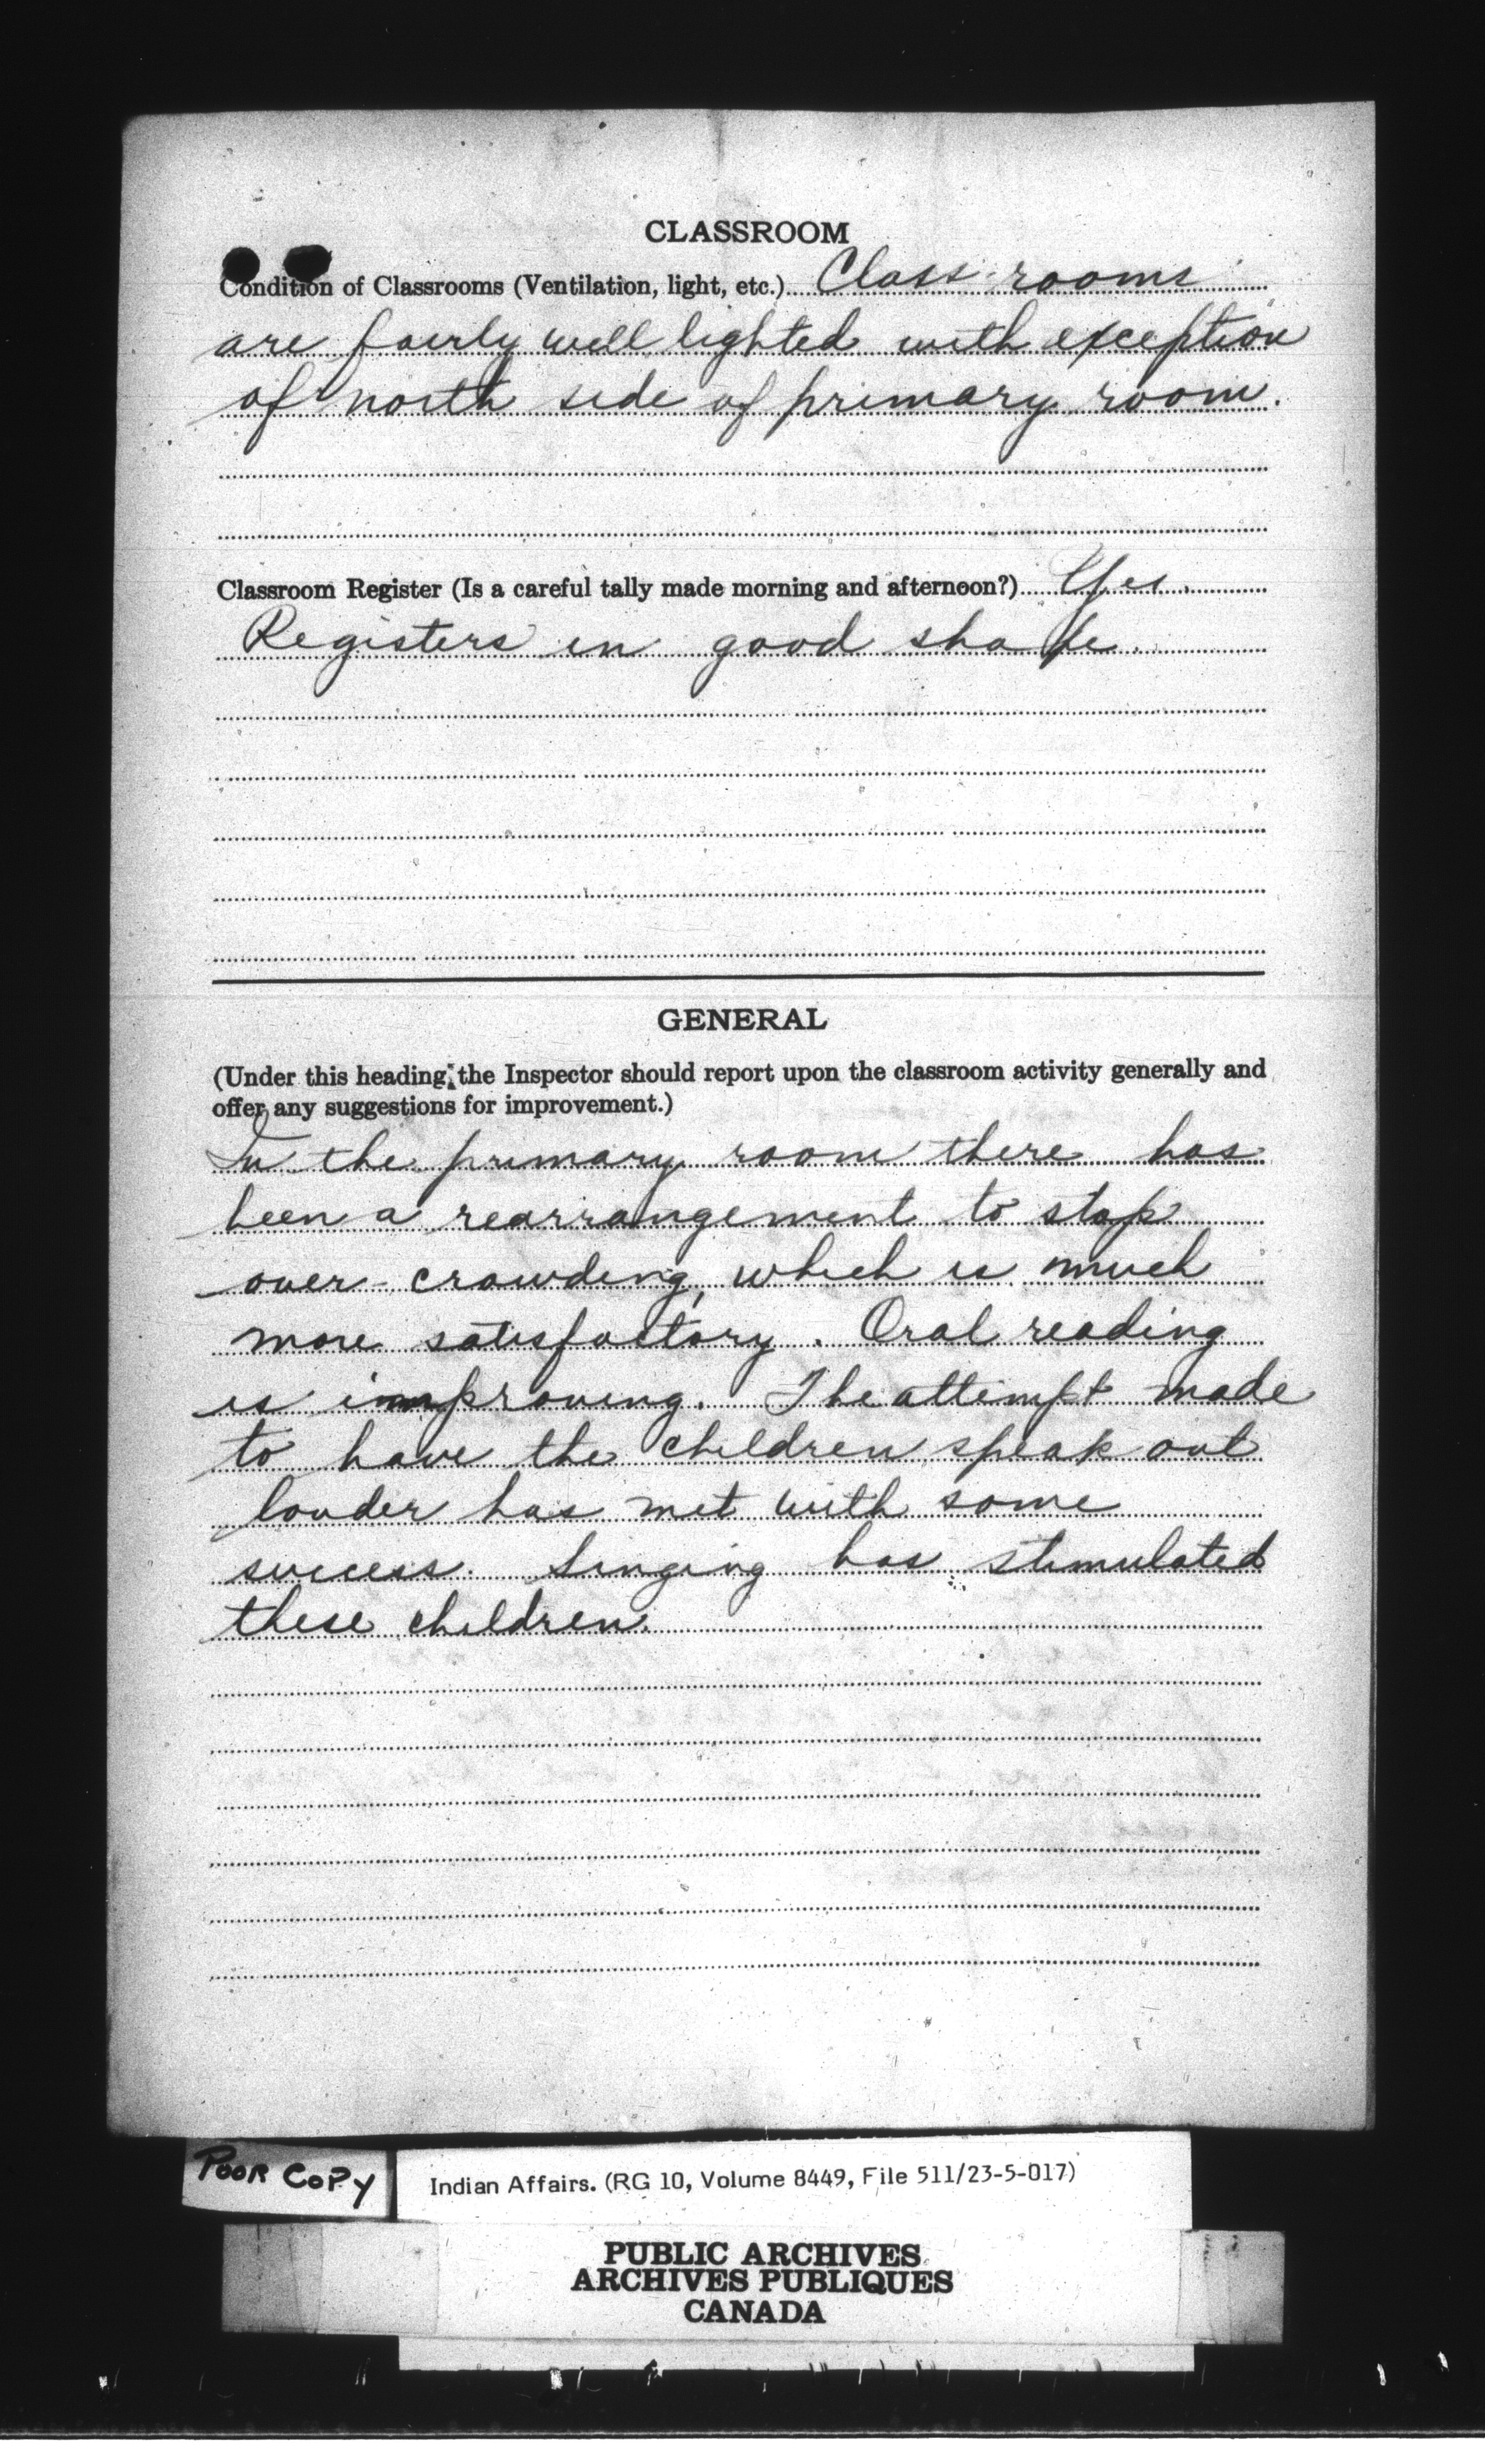 CLASSROOM
Condition of Classrooms (Ventilation, light, etc.) Class rooms
are fairly well lighted with exception
of north side of primary room.
Classroom Register (Is a careful tally made morning and afternoon?) Yes.
Registers in good shape.
GENERAL
(Under this heading, the Inspector should report upon the classroom activity generally and
offer any suggestions for improvement.)
In the primary room there has
been a rearrangement to stop
over-crowding, which is much
more satisfactory. Oral reading
is improving. The attempt made
to have the children speak out
louder has met with some
success. Singing has stimulated
these children.
POOR COPY
Indian Affairs. (RG 10, Volume 8449, File 511/23-5-017)
PUBLIC ARCHIVES
ARCHIVES PUBLIQUES
CANADA